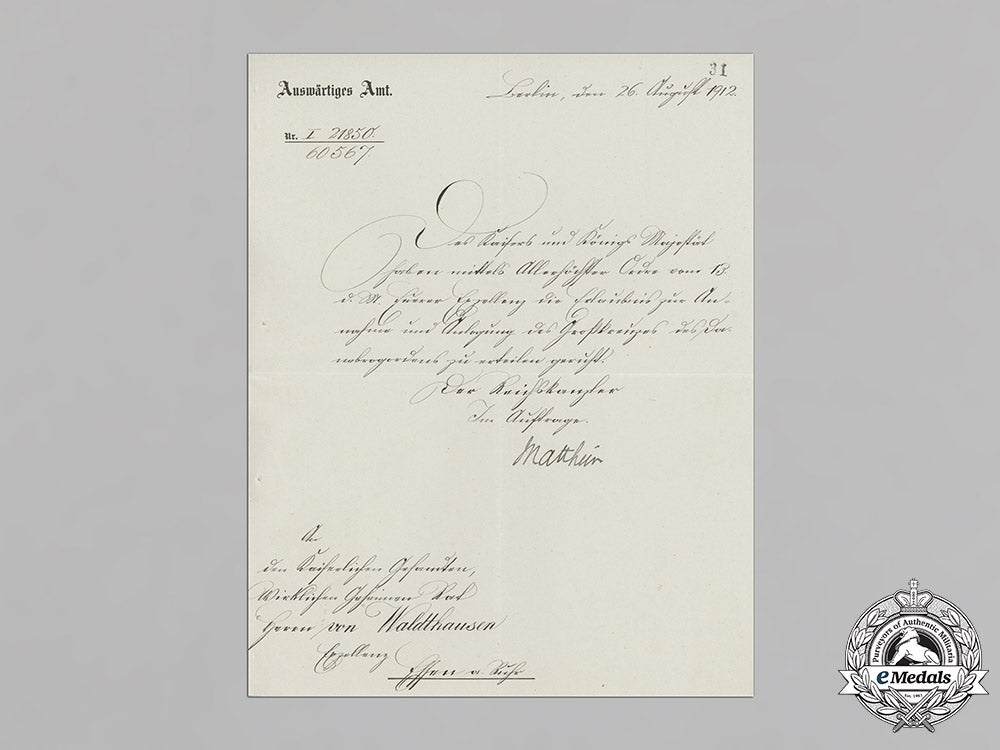 31
Auswärtiges Amt.
Berlin, den 26. August 1912.
Nr. I 21850.
60567.
Des Kaisers und Königs Majestät
haben mittels Allerhöchster Ordre vom 13.
d. Mt. Euerer Exzellenz die Erlaubnis zur An-
nahme und Anlegung des Großkreuzes des Da-
nebrogordens zu erteilen geruht.
Der Reichskanzler
Im Auftrage.
An
den Kaiserlichen Gesandten,
Wirklichen Geheimen Rat
Herrn von Waldthausen
Exzellenz
Essen a. Ruhr
Purveyors of Authentic Militaria
eMedals